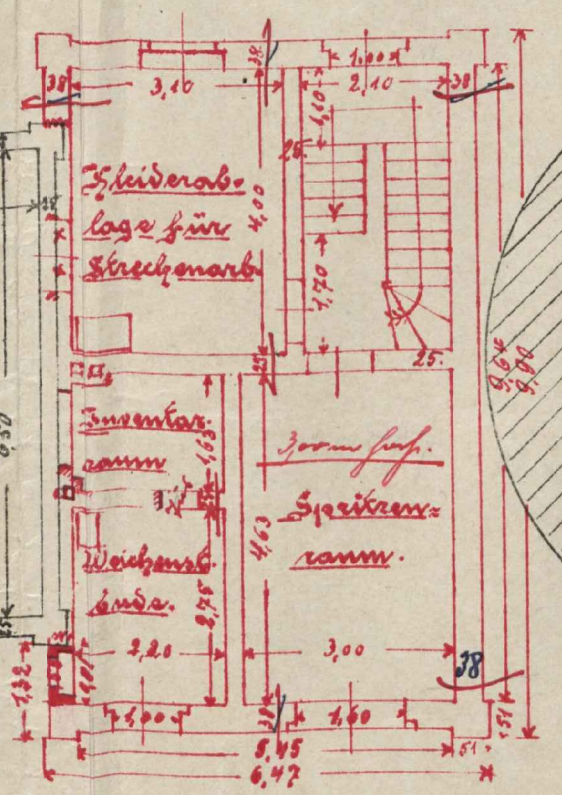 38
1,00
38
3,10
2,10
38
1,10
25.
Kleiderab-
lage für
Streckenarb.
4,00
1,70
25
25.
9,64
9,90
Inventar.
raum
1,63
3,00 m hoch.
Spritzen-
raum.
4,63
Weichenst.
bude.
2,75
25
2,20
3,00
38
1,32
1,00
38
1,60
51
5,45
51.
6,47